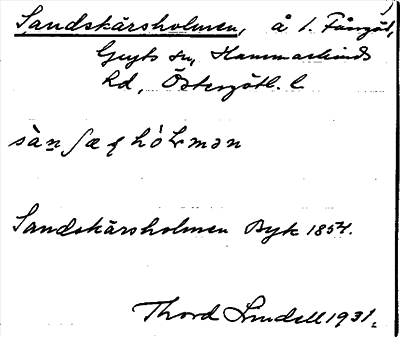 Sandskärsholmen, å l. Fångöt,
Gryts sn, Hammarkinds
hd, Östergötl. l.
sàn ʃæ q hòlmən
Sandskärsholmen Byk 1854.
Thord Lindell 1931.